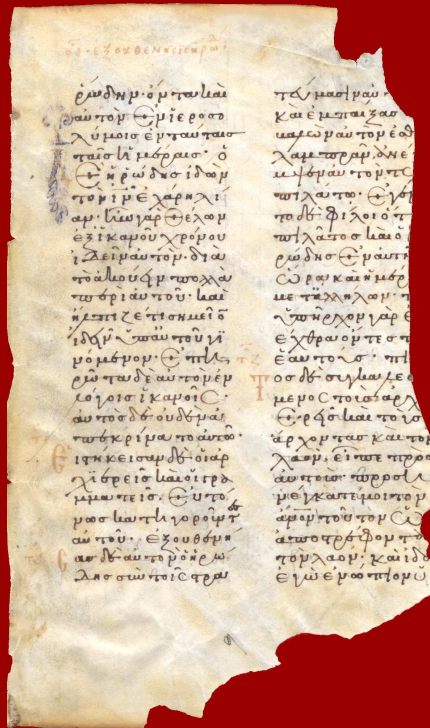 ἐξουθενησις ηρω
ρώδην· ὄντα καὶ
αὐτὸν ἐν ἱεροσο
λύμοις ἐν ταύταις
ταῖς ἡμέραις· ὁ
δὲ ἡρώδης ἰδὼν
τὸν ἰν ἐχάρη λί
αν· ἦν γὰρ θέλων
ἐξ ἱκανοῦ χρόνου
ἰδεῖν αὐτὸν. διὰ
τὸ ἀκούειν πολλὰ
περὶ αὐτοῦ· καὶ
ἤλπιζέ τι σημεῖο
ἰδεῖν ὑπ αὐτοῦ γι
νόμενον· ἐπη
ρώτα δὲ αὐτὸν ἐν
λόγοις ἱκανοῖς·
αὐτὸς δὲ οὐδὲν ἀ
πεκρίνατο αὐτῷ·
εἱστήκεισαν δὲ οἱ ἀρ
χιερεῖς καὶ οἱ γρα
μματεῖς. εὐτό
νως κατηγοροῦντες
αὐτοῦ· ἐξουθενή
σας δὲ αὐτὸν ὁ ἡρώ
δης σὺν τοῖς στρα
τεύμασιν αὐτ
καὶ ἐμπαίξας
αὐτὸν ἐσθ
λαμπρὰν. ἀνέ
πεμψεν αὐτὸν τ
πιλάτω· ἐγέ
το δὲ φίλοι ὅ τ
πιλάτος καὶ ὁ
ρώδης ἐν αὐτῇ
ὥρα καὶ ἡμέρ
με τἀλλήλων·
ὑπῆρχον γὰρ ἐ
ἔχθρα ὄντες π
ἑαυτούς· πι
τος δὲ συγκαλεσ
μενος τοὺς ἀρχ
ερεῖς καὶ τοὺς
ἄρχοντας καὶ τὸν
λαὸν, εἶπε προς
αὐτούς προση
νέγκατέ μοι τὸν
ἄνον τοῦτον ὡ
ἀποστρέφοντ
τὸν λαόν. καὶ ἰδ
ἐγὼ ἐνώπιον ὑ